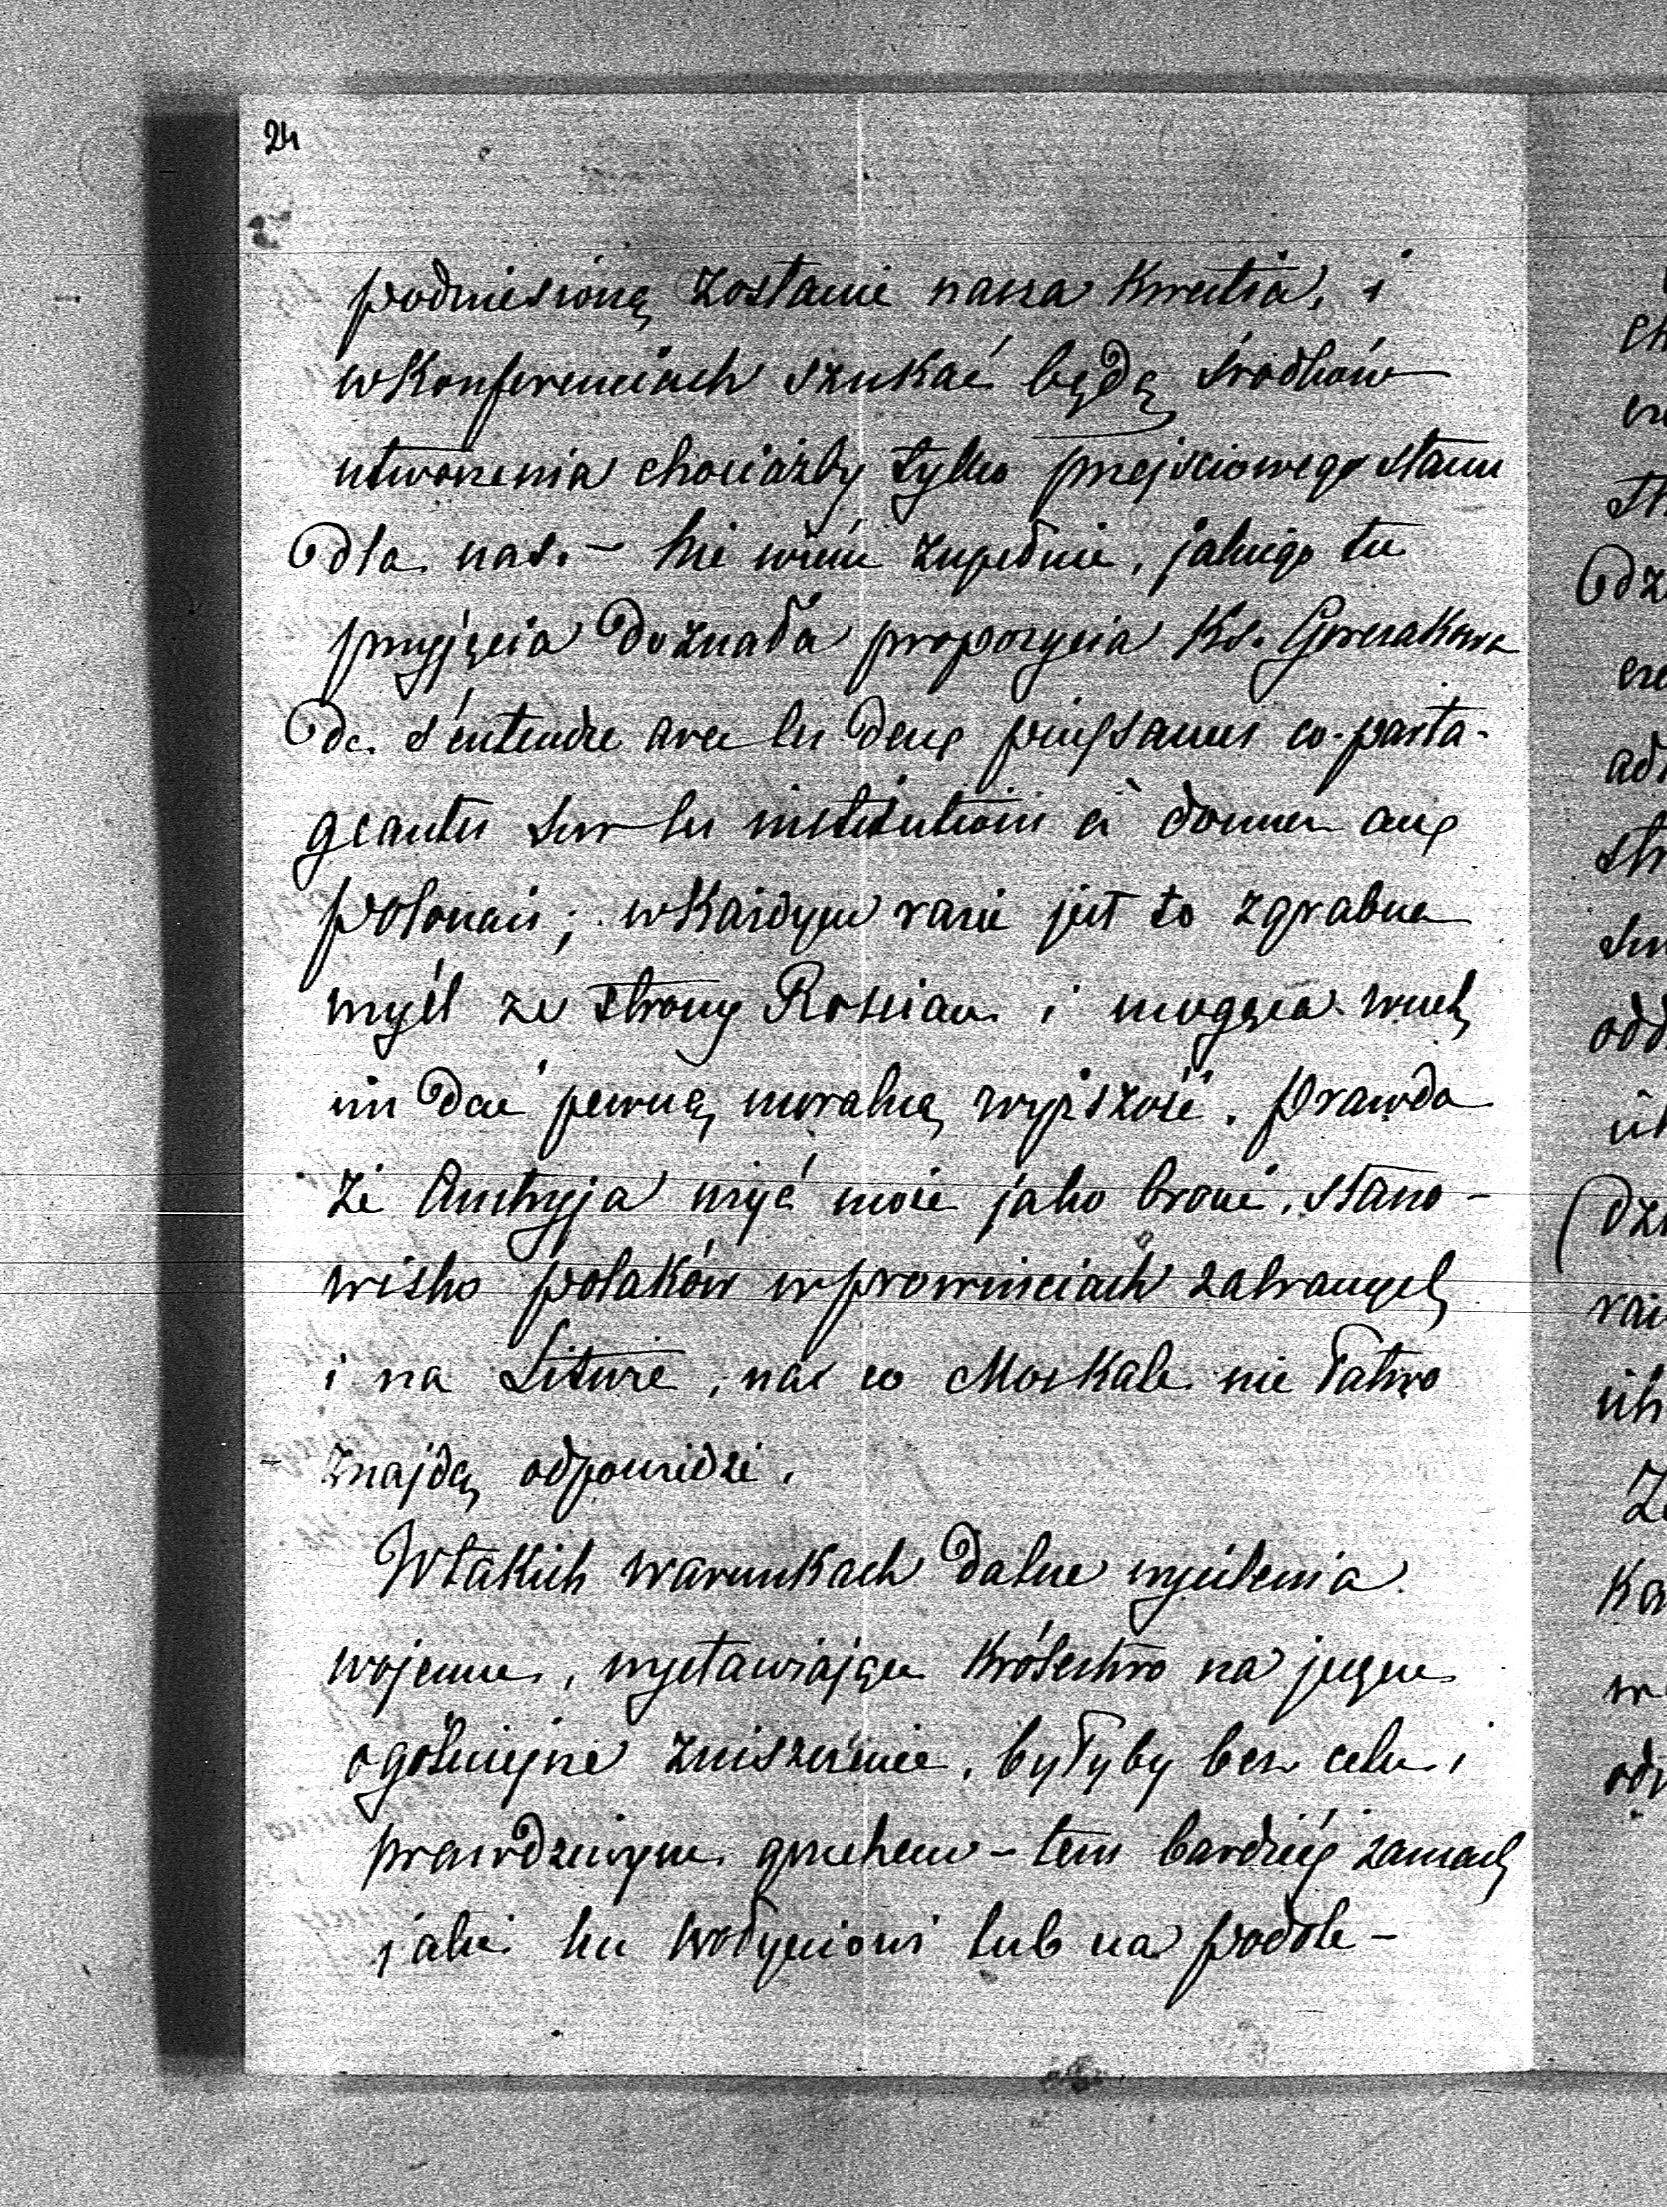 24
podniesioną zostanie nasza kwestia, i
w konferenciach szukać będą środków
utworzenia chociażby tylko przejściowego stanu
dla nas. – Nie wiem zupełnie, jakiego tu
przyjęcia doznała propozycia Ks. Gorczakowa
de s'entendre avec les deux puissances co-parta-
geantes sur les institutions à donner aux
polonais; w każdym razie jest to zgrabna
myśl ze strony Rossian i mogąca
im dać pewną moralną wyższość. Prawda
że Austryja użyć może jako broni, stano-
wisko polaków w prowinciach zabranych
i na Litwie, na co Moskale nie łatwo
znajdą odpowiedzi.
W takich warunkach dalsze wysilenia
wojenne, wystawiające Królestwo na
ogólniejsze zniszczenie, byłyby bez celu i
prawdziwym grzechem – tem bardziéj zamach
jaki ku Wołyniowi lub na Podole –